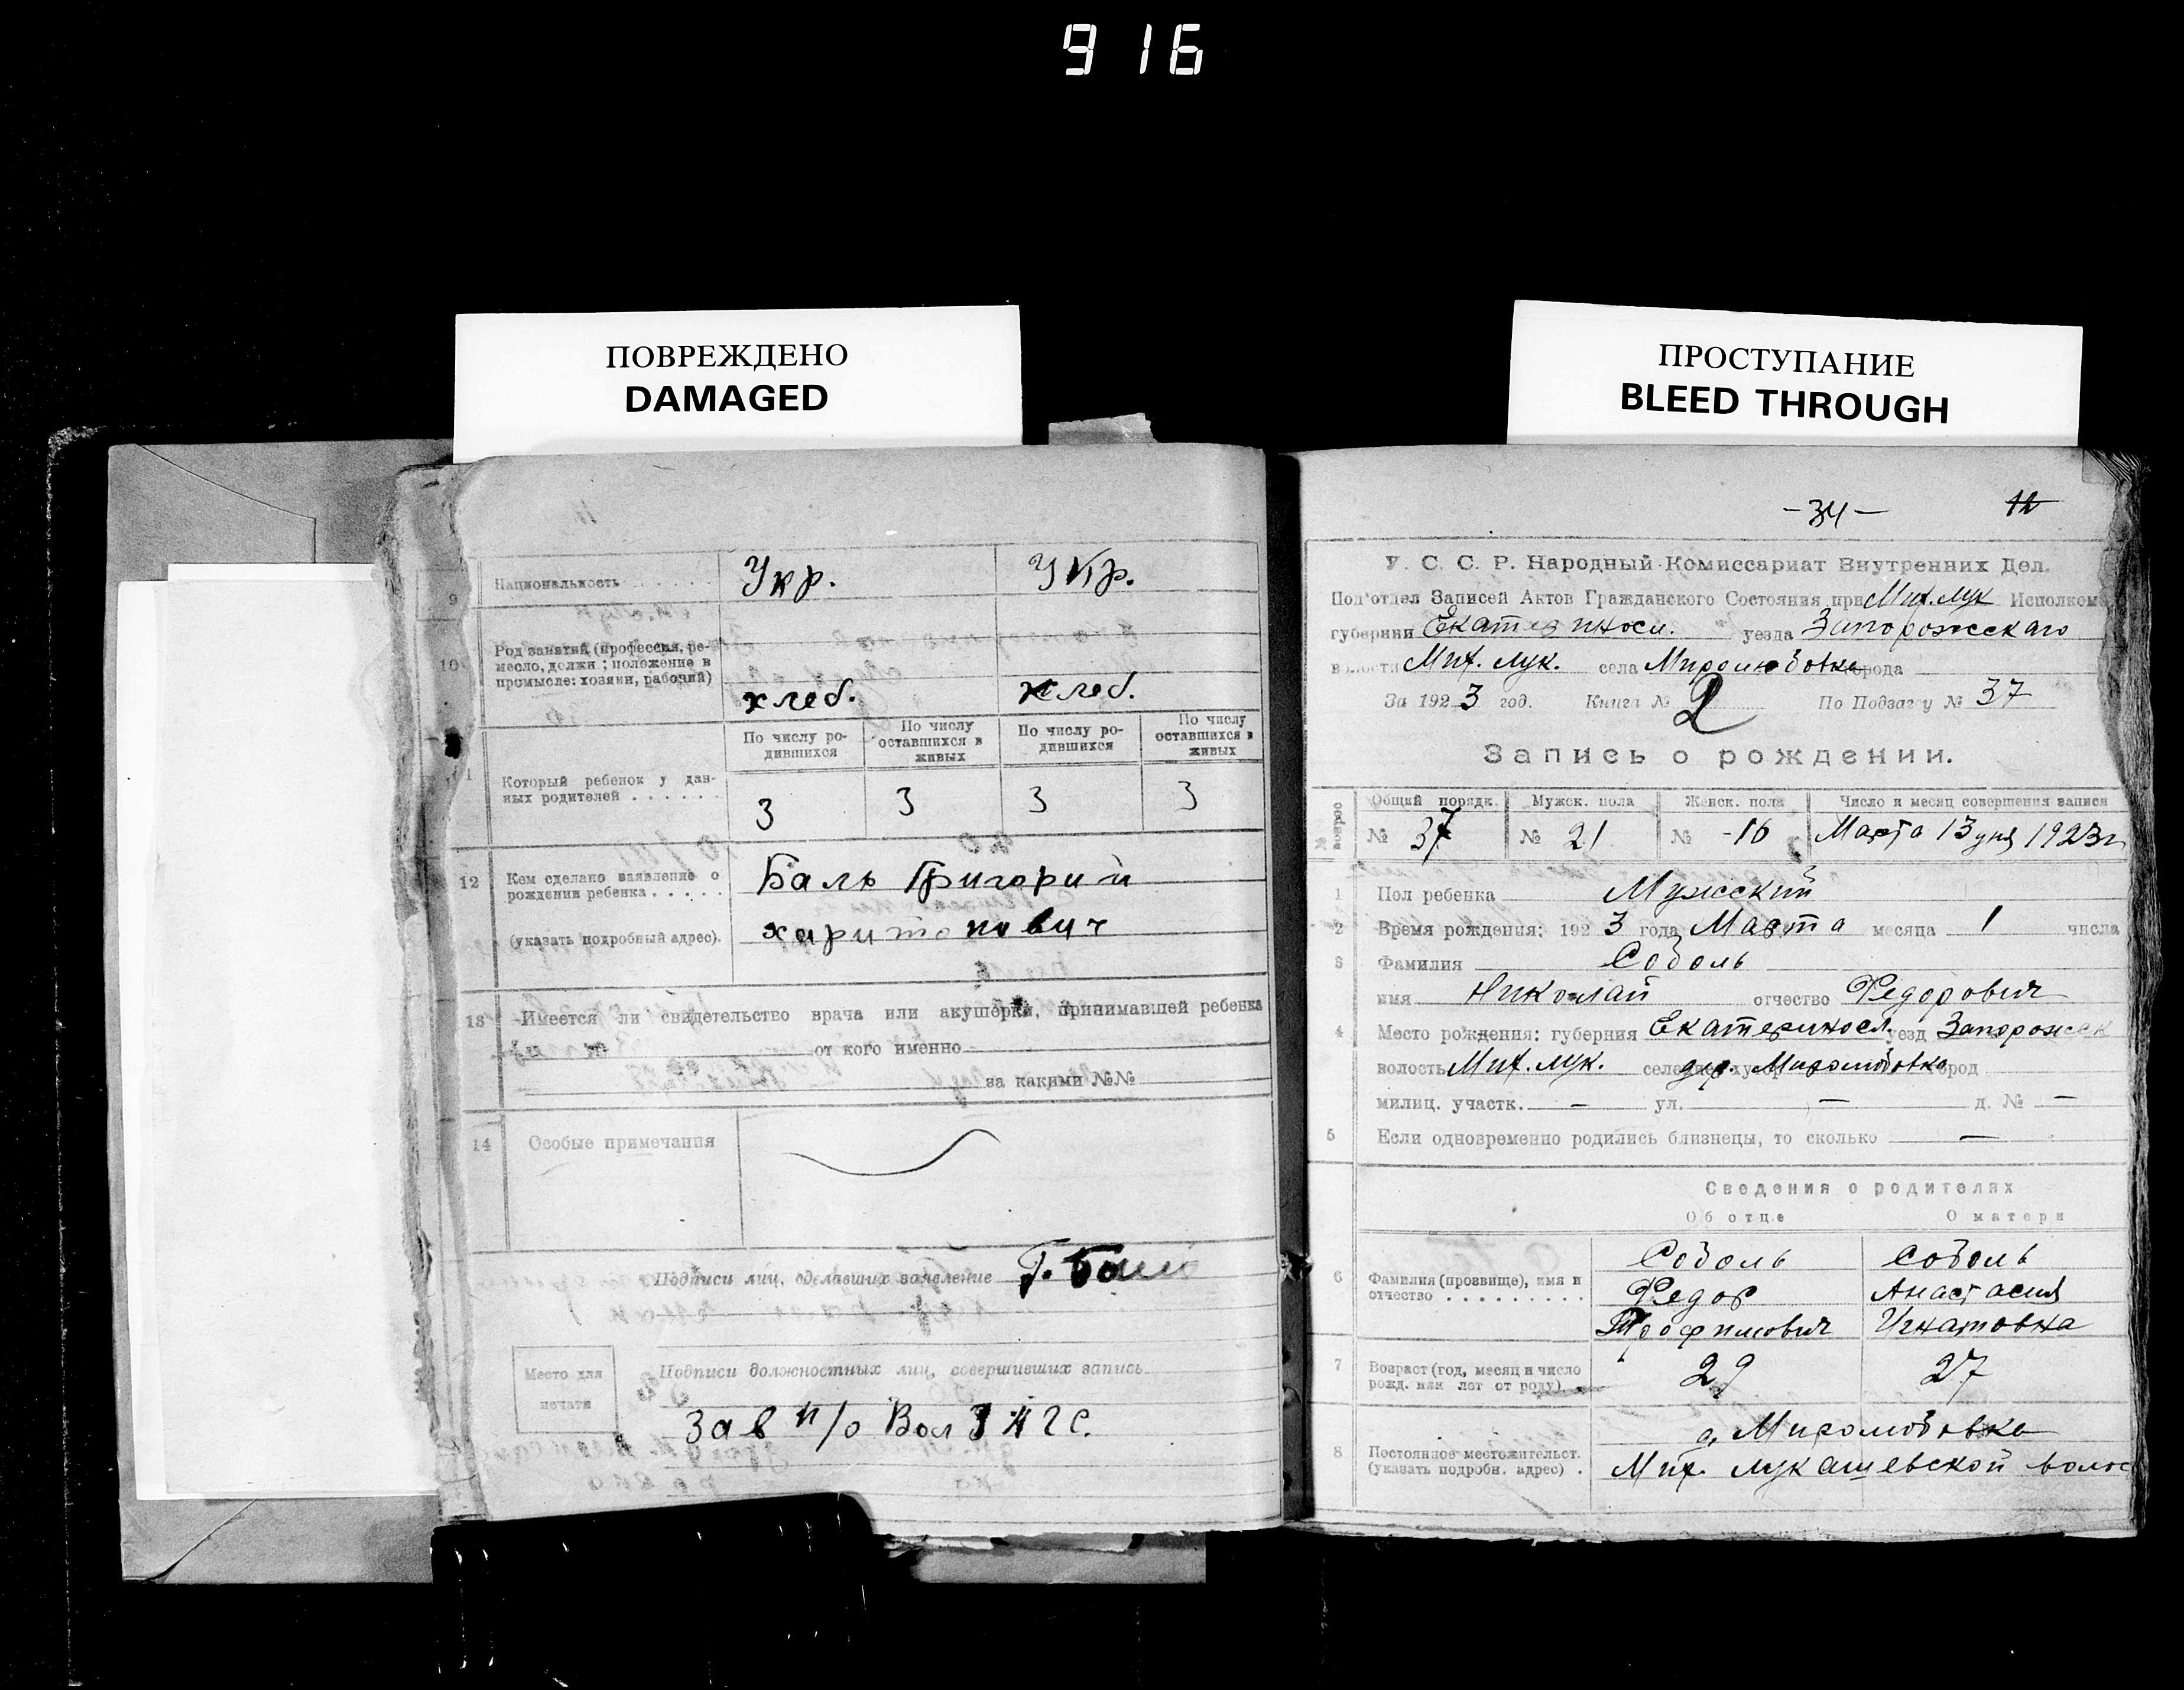 916
ПОВРЕЖДЕНО
DAMAGED
ПРОСТУПАНИЕ
BLEED THROUGH
9 Национальность Укр. Укр.
10 Род занятий (профессия, ремесло, должн; положение в промысле: хозяин, рабочий) хлеб. хлеб.
По числу родившихся По числу оставшихся в живых По числу родившихся По числу оставшихся в живых
Который ребенок у данных родителей 3 3 3 3
12 Кем сделано заявление о рождении ребенка Баль Григорий
(указать подробный адрес). харитонович
13 Имеется ли свидетельство врача или акушерки, принимавшей ребенка
от кого именно
за какими №№
14 Особые примечания
Подписи лиц, сделавших заявление Г. Баль
Место для печати
Подписи должностных лиц, совершивших запись
Зав п/о Вол ЗАГС.
-34- 12
У. С. С. Р. Народный Комиссариат Внутренних Дел.
Под'отдел Записей Актов Гражданского Состояния при Мих. Лук Исполком
губернии Екатериносл. уезда Запорожскаго
волости Мих. лук. села Миролюбовка города
За 1923 год. Книга № 2 По Подзагсу № 37
Запись о рождении.
Общий порядк. Мужск. пола Женск. пола Число и месяц совершения записи
№ 37 № 21 № -16 Марта 13 дня 1923 г
1 Пол ребенка Мужский
2 Время рождения: 1923 года Марта месяца 1 числа
3 Фамилия Соболь
имя Николай отчество Федорович
4 Место рождения: губерния Екатериносл. уезд Запорожск
волость Мих. лук. селение, хутор дер. Миролюбовка город
милиц. участк. — ул. — д. № —
5 Если одновременно родились близнецы, то сколько —
Сведения о родителях
Об отце О матери
Соболь Соболь
6 Фамилия (прозвище), имя и отчество Федор Анастасия
Трофимович Игнатовна
7 Возраст (год, месяц и число рожд. или лет от роду) 29 27
д. Миролюбовка
8 Постоянное местожительст. (указать подробн. адрес) Мих. Лукашевской волос